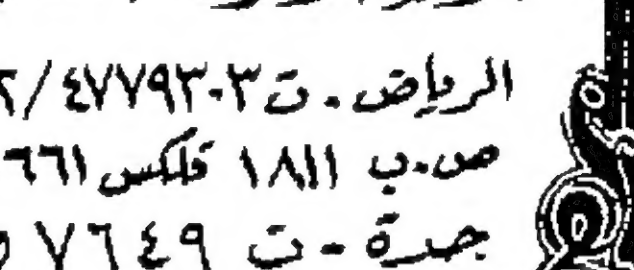 الرياض - ت ٤٧٧٩٣٠٣/٢
ص.ب ١٨١١ فلكس ٦٦١
جدة - ت ٧٦٤٩